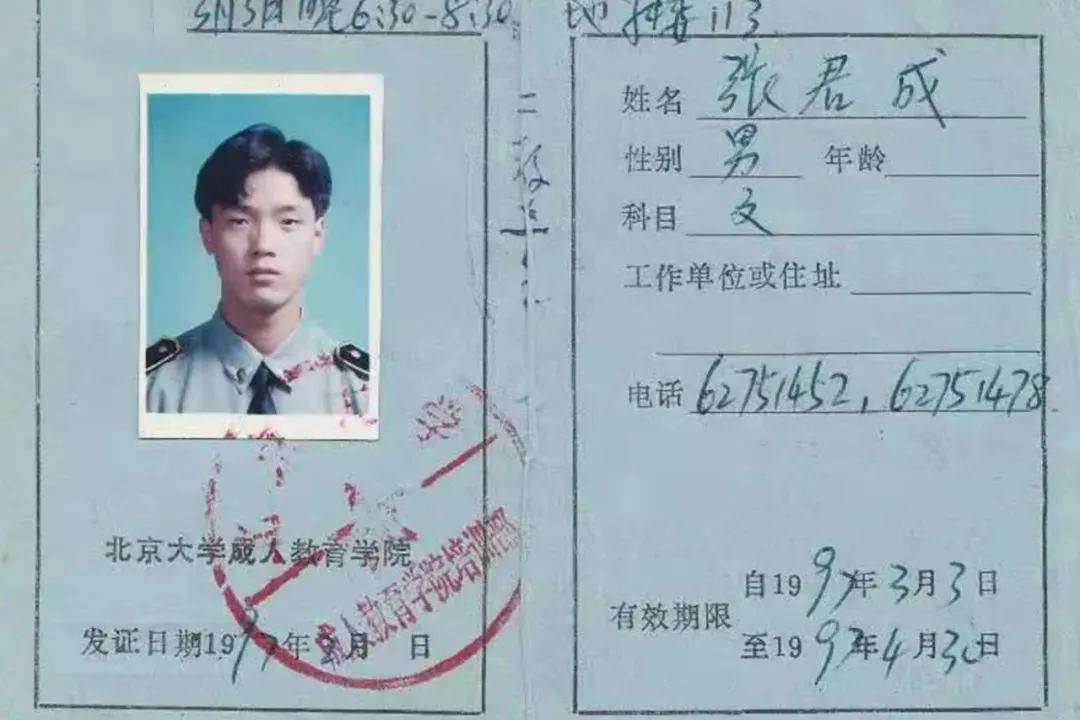 3月3日晚6:30-8:30 地 113
姓名 张君成
性别 男 年龄
科目 文
工作单位或住址
电话 62751452，62751478
北京大学成人教育学院
成人教育学院培训部
发证日期1997年3月 日
有效期限
自1997年3月3日
至1997年4月30日